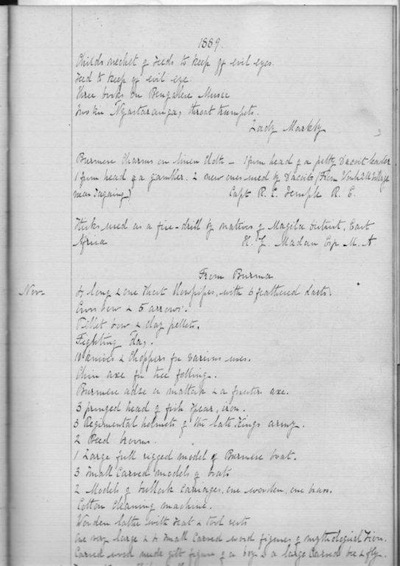 1889.
Childs necklet of seeds to keep off evil eyes.
Seed to keep off evil eye
Three books on Bengalee Music
Two Nyastaranga, throat trumpets.
Lady Markby
Burmese charms on linen cloth - 1 from head of a petty Dacoit leader
1 from head of a gambler. 2 new ones used by Dacoits (From village
near Sagaing)
Capt R. C. Temple R. E.
Sticks used as a fire-drill by natives of Magila district, East
Africa
H. G. Madan Esq M. A
From Burma
Nov
4 long & one short blowpipes, with 6 feathered darts.
Cross bow & 5 arrows.
Pellet bow & clay pellets.
Fighting
knives & choppers for various uses.
axe for tree felling.
Burmese adze or mattock & a smaller axe.
3 pronged head of fish spear, iron.
3 Regimental helmets of the late Kings army.
2 Reed
1 Large full rigged model of Burmese boat.
3 Small carved models of boats
2 Models of bullock carriages, one wooden, one brass.
Cotton cleaning machine.
Wooden lathe with seat & tool rests
One very large & 4 small carved wood figures of mythological
Carved wood nude gilt figure of a boy & a large carved